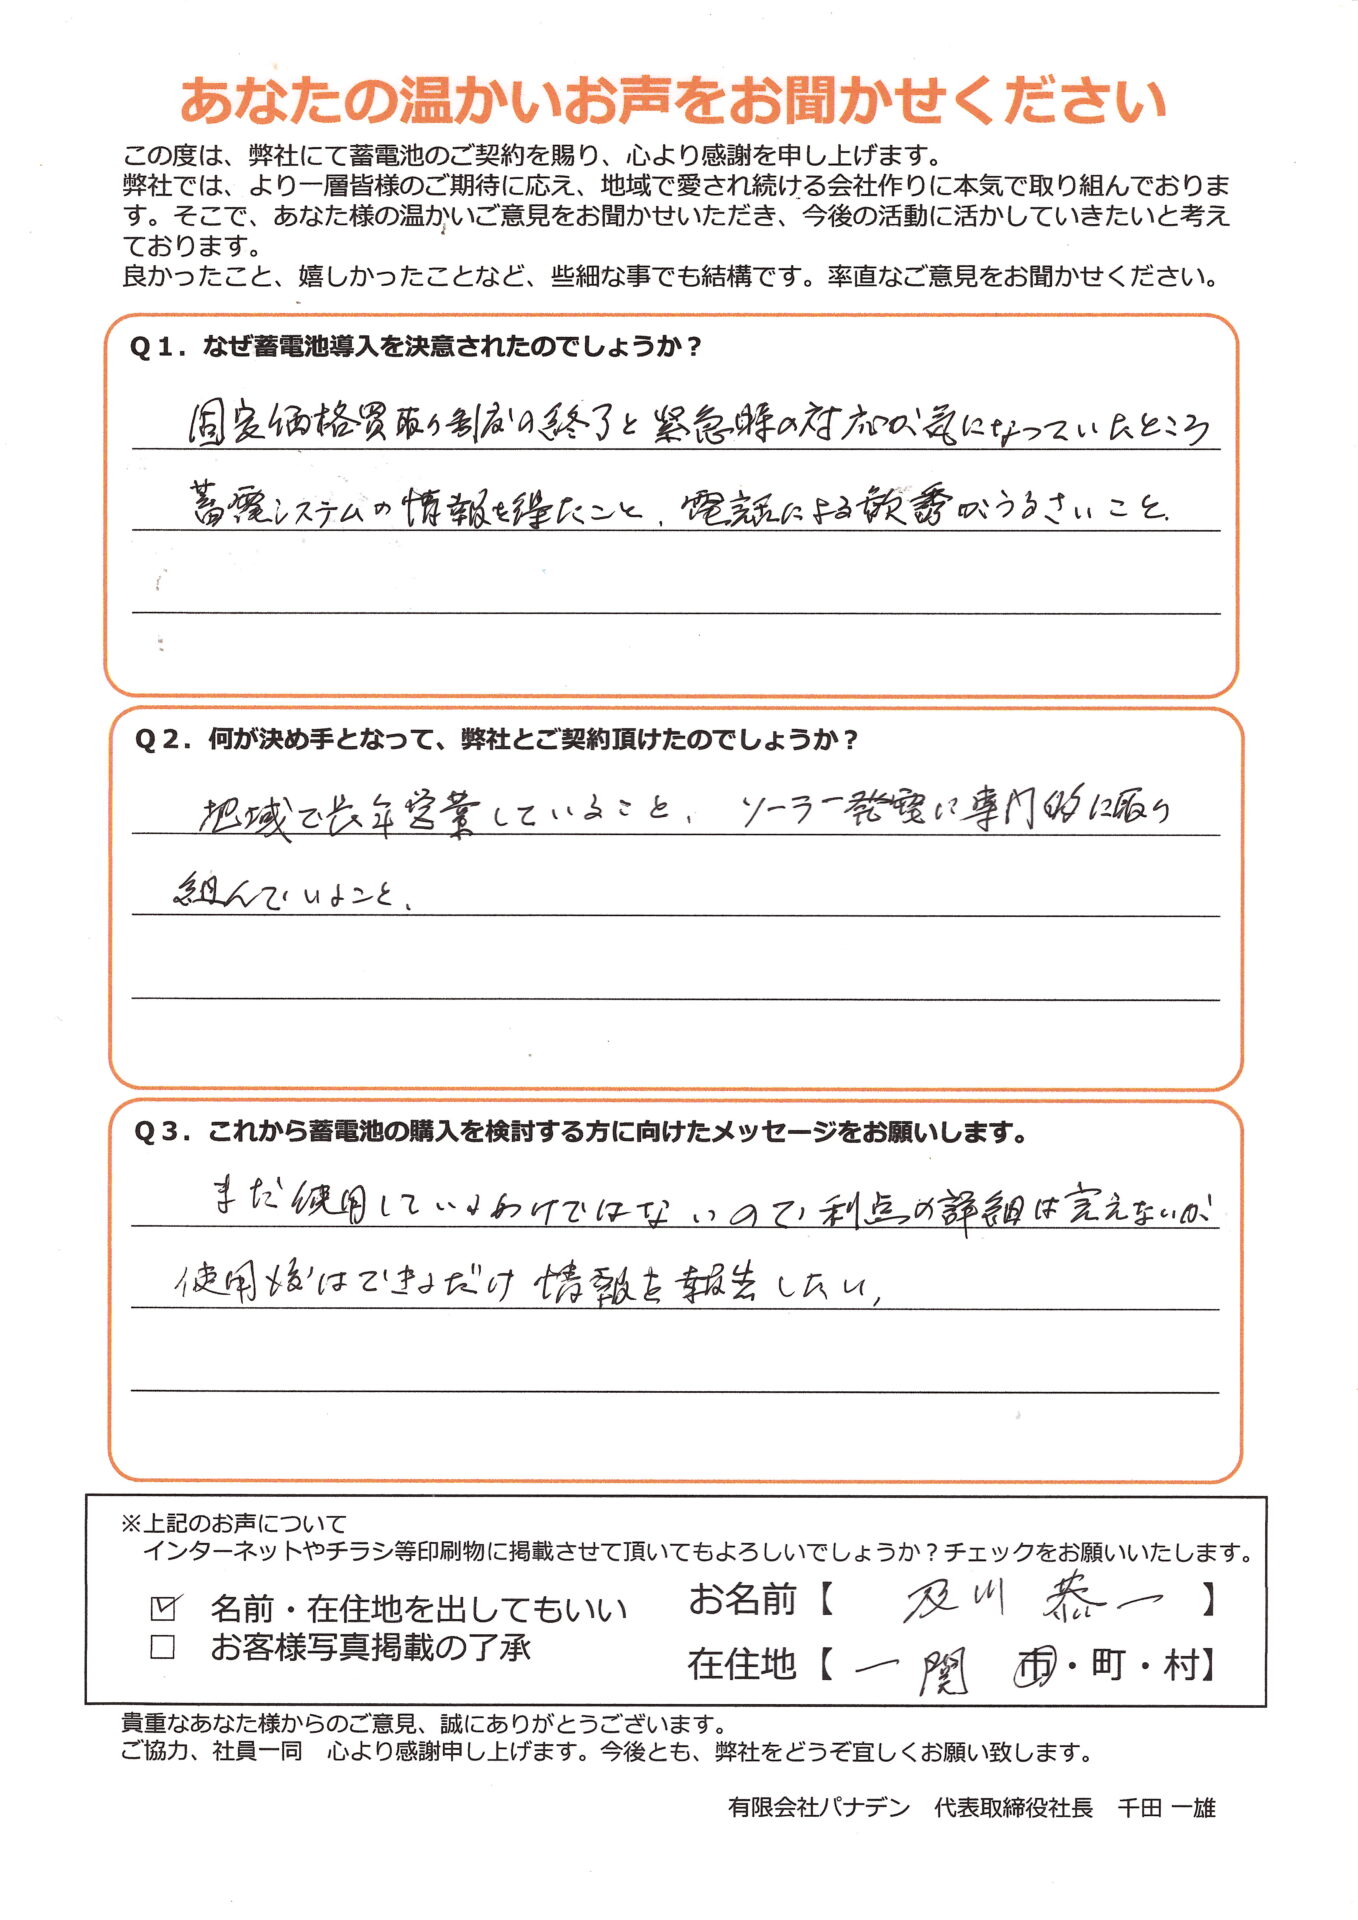 あなたの温かいお声をお聞かせください
この度は、弊社にて蓄電池のご契約を賜り、心より感謝を申し上げます。
弊社では、より一層皆様のご期待に応え、地域で愛され続ける会社作りに本気で取り組んでおりま
す。そこで、あなた様の温かいご意見をお聞かせいただき、今後の活動に活かしていきたいと考え
ております。
良かったこと、嬉しかったことなど、些細な事でも結構です。率直なご意見をお聞かせください。
Q1．なぜ蓄電池導入を決意されたのでしょうか？
固定価格買取り制度の終了と緊急時の対応が気になっていたところ
蓄電システムの情報を得たこと、電話による勧誘がうるさいこと、
Q2．何が決め手となって、弊社とご契約頂けたのでしょうか？
地域で長年営業していること、ソーラー発電に専門的に取り
組んでいること、
Q3．これから蓄電池の購入を検討する方に向けたメッセージをお願いします。
まだ使用しているわけではないので利点の詳細は言えないが
使用後はできるだけ情報を報告したい、
※上記のお声について
インターネットやチラシ等印刷物に掲載させて頂いてもよろしいでしょうか？チェックをお願いいたします。
☑ 名前・在住地を出してもいい お名前【 及川 恭一 】
□ お客様写真掲載の了承
在住地【 一関 市・町・村】
貴重なあなた様からのご意見、誠にありがとうございます。
ご協力、社員一同 心より感謝申し上げます。今後とも、弊社をどうぞ宜しくお願い致します。
有限会社パナデン 代表取締役社長 千田 一雄